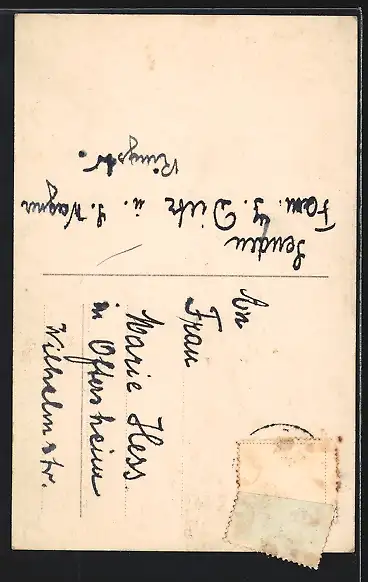 Senden
Fam. G. Dietz u. L. Wagner
Ringstr.
An
Frau
Marie Hess
in Oftersheim
Wilhelmstr.